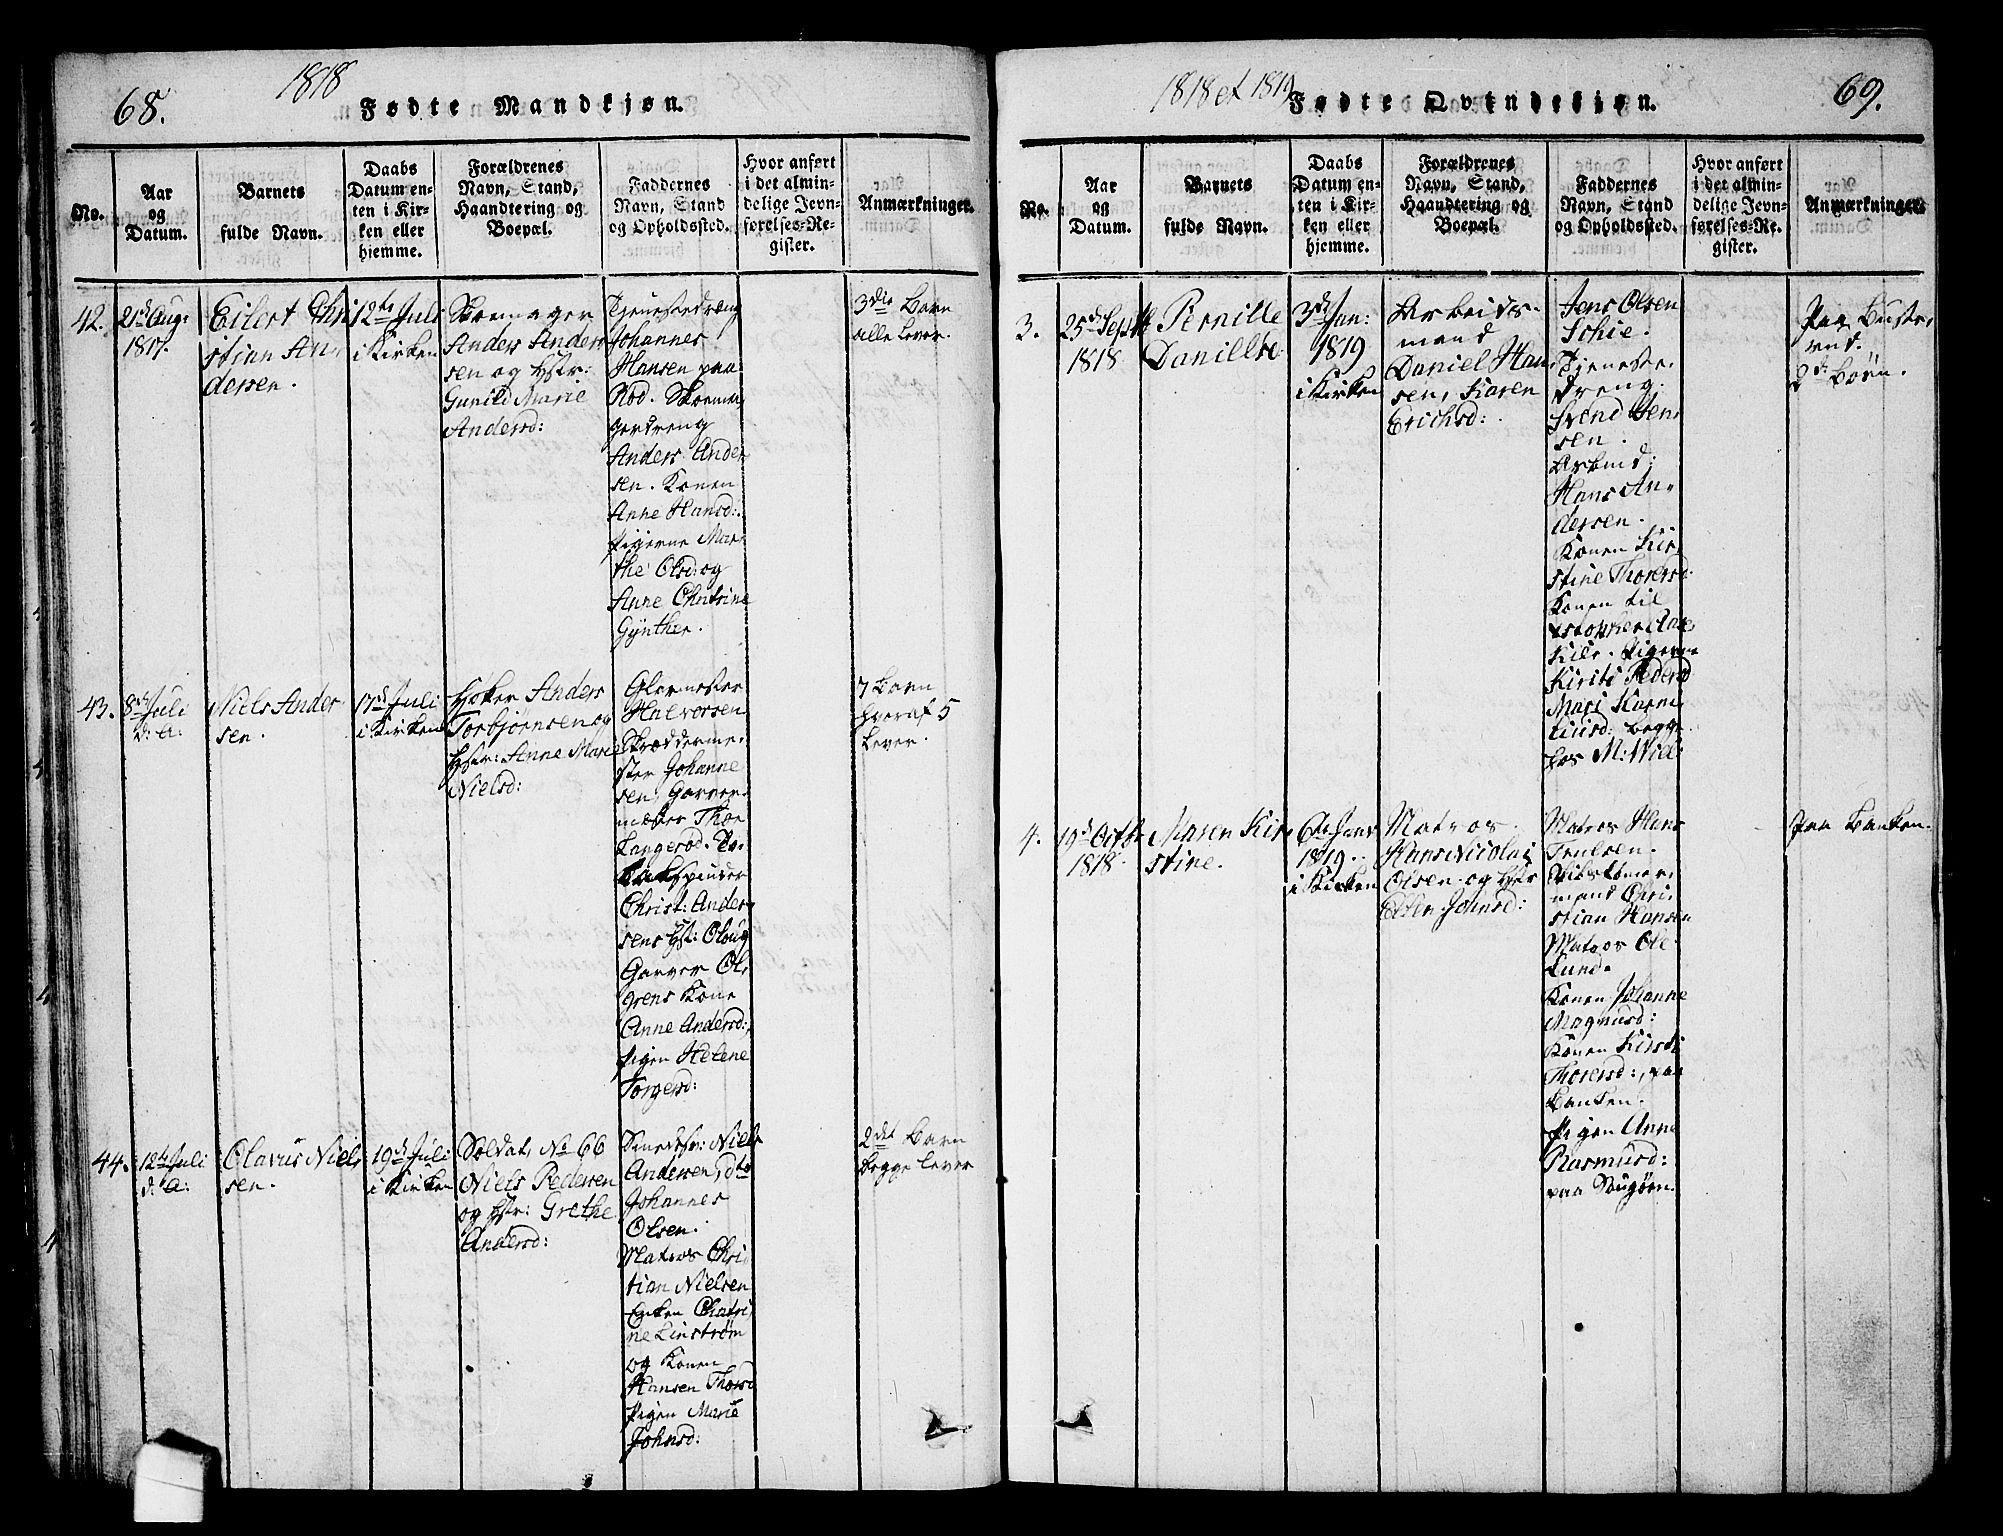 68.
1818
Fødte Mandkjøn.
No.
Aar
og
Datum.
Barnets
fulde Navn.
Daabs
Datum en-
ten i Kir-
ken eller
hjemme.
Forældrenes
Navn, Stand,
Haandtering og
Boepæl.
Faddernes
Navn, Stand
og Opholdssted.
Hvor anført
i det almin-
delige Jevn-
førelses-Re-
gister.
Anmærkninger.
42.
21d Aug:
1817.
Eilert Chri
stian An,
dersen.
12te Juli
i Kirken
Skomager
Anders Anders
sen og Hstr:
Gunild Marie
Andersd:
Tjenestedreng
Johannes
Hansen paa
Rød. Skoma,
gerdreng
Anders Ander
sen. Konen
Anne Hansd:
Pigerne Mar
the Olsd: og
Anne Chatrine
Gÿnther.
3die Barn
alle lever.
43.
8de Juli
d: a:
Niels Ander
sen.
17d Juli
i Kirken
Høker Anders
Torbjørnsen og
Hstr: Anne Marie
Nielsd:
Glarmester
Halvorsen
Skrædderme,
ster Johanne
sen, Garver
mester Thor
Langerød.
Christ: Ander
sens Hst: Oloug
Garver Ol,
grens Kone
Anne Andersd:,
Pigen Helene
Torgersd:
7 Barn
hvoraf 5
lever.
44.
12te Juli
d: a:
Olavus Niels
sen.
19d Juli
i Kirken
Soldat, No 66
Niels Pedersen
og Hstr: Grethe
Andersd:
Smedsv: Niels
Andersen, do
Johannes
Olsen.
Matros Chri
tian Nielsen
Enken Chatri
ne Linstrøm
og Konen
Hansen Thorsd
Pigen Marie
Johnsd:
2det Barn
begge lever
1818 et 1819
Fødte Qvindekjøn.
69.
No.
Aar
og
Datum.
Barnets
fulde Navn.
Daabs
Datum en-
ten i Kir-
ken eller
hjemme.
Forældrenes
Navn, Stand,
Haandtering og
Boepæl.
Faddernes
Navn, Stand
og Opholdssted.
Hvor anført
i det almin-
delige Jevn-
førelses-Re-
gister.
Anmærkninger.
3.
25d Sept
1818
Pernille
Danielse
3d Jan:
1819
i Kirken
Arbeids-
mand
Daniel Han
sen, Karen
Erichsd:
Jens Olsen
Schie.
Tjeneste,
dreng
Svend Jen,
sen.
Arbmd:
Hans An,
dersen.
Konen Kir,
stine Thorersd:
Konen til
Pigerne
Kirsti Pedersd
Mari
begge
hos M: Wild
Paa
2de Børn.
4.
19d Octbr
1818
Maren Kir,
stine.
6te Janr
1819.
i Kirken
Matros
Hans Nicolai
Olsen og Hstr
Ellen Johnsd:
Matros Hans
Truelsen.
mand Chri,
stian Hansen
Matros Ole
Lund.
Konen Johanne
Magnusd:
Konen Kirsti
Thorersd:, paa
Banken.
Pigen Anne
Rasmusd:
paa Saugøen.
paa Banken.